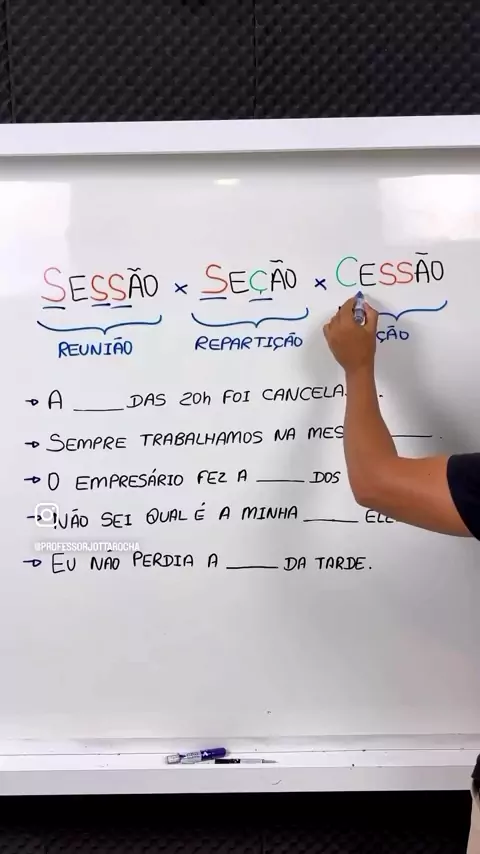 SESSÃO x SEÇÃO x CESSÃO
REUNIÃO REPARTIÇÃO ÇÃO
→ A ____ DAS 20h FOI CANCELA .
→ SEMPRE TRABALHAMOS NA MES ____.
→ O EMPRESÁRIO FEZ A ____ DOS
→ NÃO SEI QUAL É A MINHA ____ ELE
@PROFESSORJOTTAROCHA
→ EU NÃO PERDIA A ____ DA TARDE.